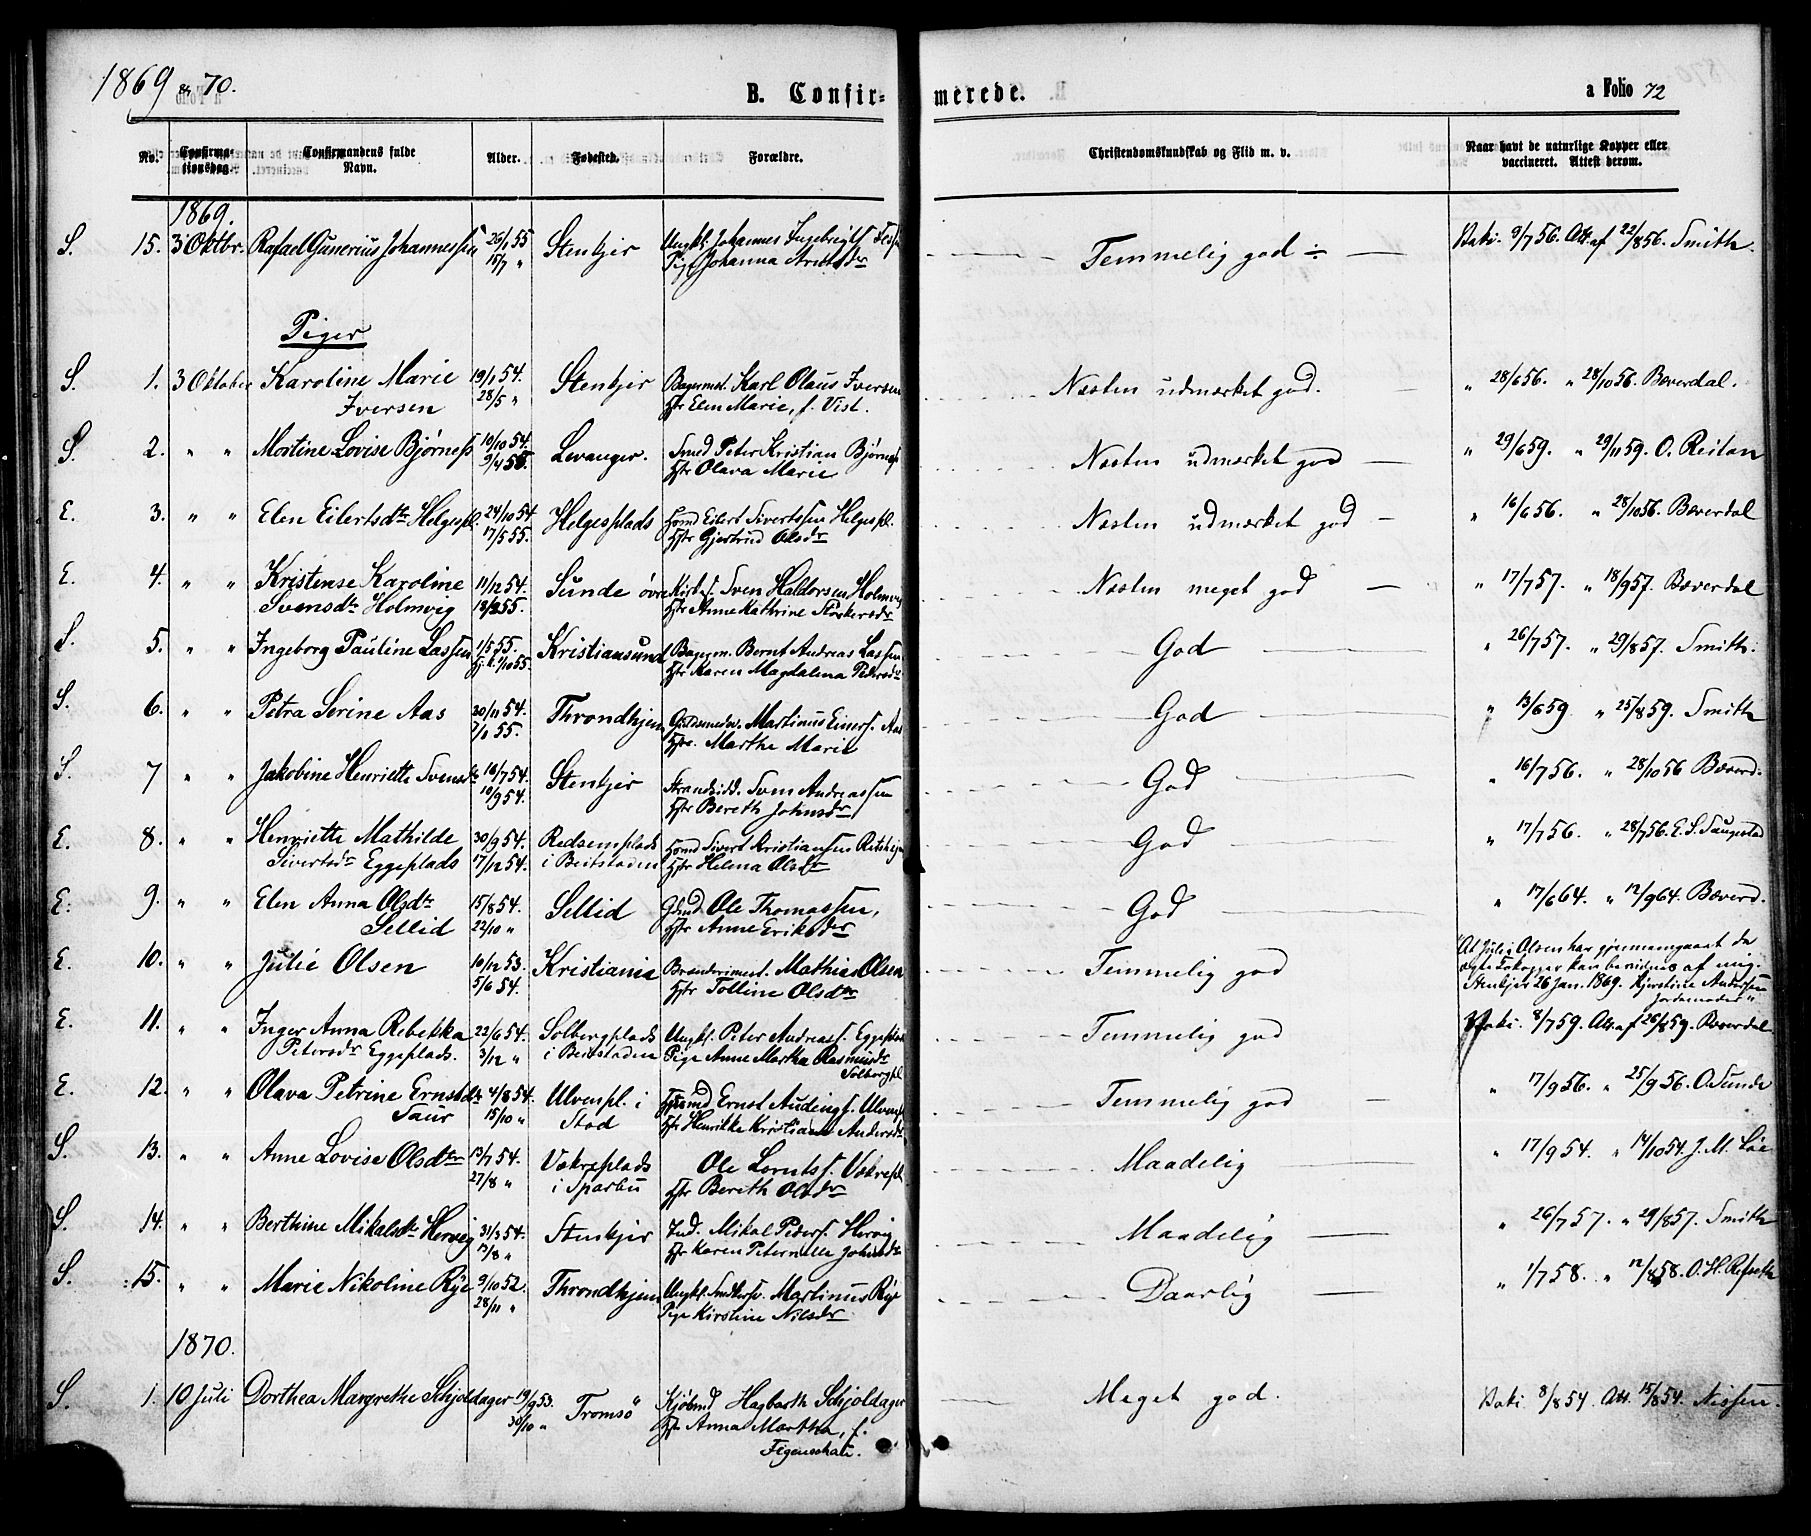 1869 & 70.
B. Confirmerede.
a Folio 72
No. Confirmationsdag. Confirmandens fulde Navn. Alder. Fødested. Forældre. Christendomskundskab og Flid m. v. Naar havt de naturlige Kopper eller vaccineret. Attest derom.
1869.
S. 15. 3 Oktbr. Rafael Gunerius Johannessen 26/1 55 Stenkjer Ungkl. Johannes Ingebrigts. Temmelig god ÷ Vaki. 9/7 56. Att. af 22/8 56. Smith.
15/7 " Pige Johanna
Piger
S. 1. 3 Oktober Karoline Marie 19/1 54. Stenkjer Bagermst. Karl Olaus Iversen Næsten udmærket god. " 28/6 56. " 28/10 56. Bæverdal.
Iversen 28/5 " Hstr Elen Marie, f. Vist.
S. 2. " " Mostine Lovise Bjørness 10/10 54. Levanger. Smed Peter Kristian Bjørness Næsten udmærket god " 29/6 59. " 29/11 59. O. Reitan
9/4 55. Hstr Olava Marie
E. 3. " " Elen Eilertsdtr Helgespl. 24/10 54 Helgesplads Hosmd Eilert Sivertssen Helgespl. Næsten udmærket god " 16/6 56. " 28/10 56. Bæverdal
17/5 55. Hstr Gjertrud Olsdr
E. 4. " " Kristense Karoline 11/12 54. Sunde øvre Kirkes. Sven Haldorsen Holmveg Næsten meget god " 17/7 57. " 18/9 57. Bæverdal
Svensdtr Holmveg 18/3 55. Hstr Anne Kathrine Storkersdr
S. 5. " " Ingeborg Pauline Lassen 1/5 55. Kristiansund Bagerm. Bernt Andreas Lassen God " 26/7 57. " 29/8 57. Smith.
Hj. k. 1/10 55. Hstr Karen Magdalena Pedersdr
S. 6. " " Petra Serine Aas 30/11 54. Throndhjem Martinus Einers. Aas God " 13/6 59 " 25/8 59. Smith
1/1 55. Hstr. Marthe Marie
S. 7 " " Jakobine Henriette Svensdtr 16/7 54. Stenkjer Strandsidd. Sven Andreassen God " 16/7 56. " 28/10 56 Bæverd.
10/9 54. Hstr Bereth Johnsdr
E. 8. " " Henriette Mathilde 30/9 54. Redsemplads Hosmd Sivert Kristiansen God " 17/7 56. " 28/7 56. E. S. Saugestad
Sivertsdr Eggeplads 17/12 54. i Beitstaden Hstr Helena Olsdr
E. 9. " " Elen Anna Olsdtr 15/8 54. Sellid Gbmd. Ole Thomassen, God " 17/6 64. " 12/9 64. Bæverd.
Sellid 22/10 " Hstr Anne Eriksdr
E. 10. " " Julie Olsen 10/12 53. Kristiania Mathias Olsen Temmelig god At Julie Olsen har gjennemgaaet de
5/6 54. Hstr Tolline Olsdtr ægte Kokopper kan bevidnes af mig.
Stenkjer 26 Jan. 1869. Kjerstine Andersen
Jordemoder"
E. 11. " " Inger Anna Rebekka 22/6 54. Solbergplads Ungkl. Peter Andreass. Eggeplads Temmelig god Vaki. 8/7 59. Att. af 26/8 59. Bæverdal
Petersdr Eggeplads. 3/12 " i Beitstaden Pige Anne Martha Rasmusdr
Solbergpl.
E. 12. " " Olava Petrine Ernstdtr 4/8 54. Ulvenpl. i Hosmd Ernst Audings. Ulvenpl. Temmelig god " 17/9 56. " 25/9 56. O. Sunde
Saur 15/10 " Stod Hstr Henrikke Kristiane Andersdr
S. 13. " " Anne Lovise Olsdter 13/7 54. Vækreplads Ole Lornts. Vækrepl. Maadelig " 17/9 54. " 14/10 54. J. M. Löe
27/8 " i Sparbu Hstr Bereth Olsdr
S. 14. " " Berthine Mikalsdtr Hervig 31/3 54. Stenkjer Ind. Mikal Peders. Hervig Maadelig " 26/7 57. " 29/8 57. Smith
13/8 " Hstr Karen Peternelle Johnsdtr
S. 15. " " Marie Nikoline Rye 9/10 52. Throndhjem Ungkl. Martinus Rye Daarlig " 1/7 58. " 12/8 58. O. H. Refseth
28/11 " Pige Kirstine Nilsdr
1870.
S. 1. 10 Juli Dorthea Margrethe Schjoldager 19/9 53. Tromsö Kjøbmd Hagbarth Schjoldager Meget god. Vaki. 8/8 54. Att. 15/8 54. Nissen.
30/10 " Hstr Anna Martha, f.
Figenschau.